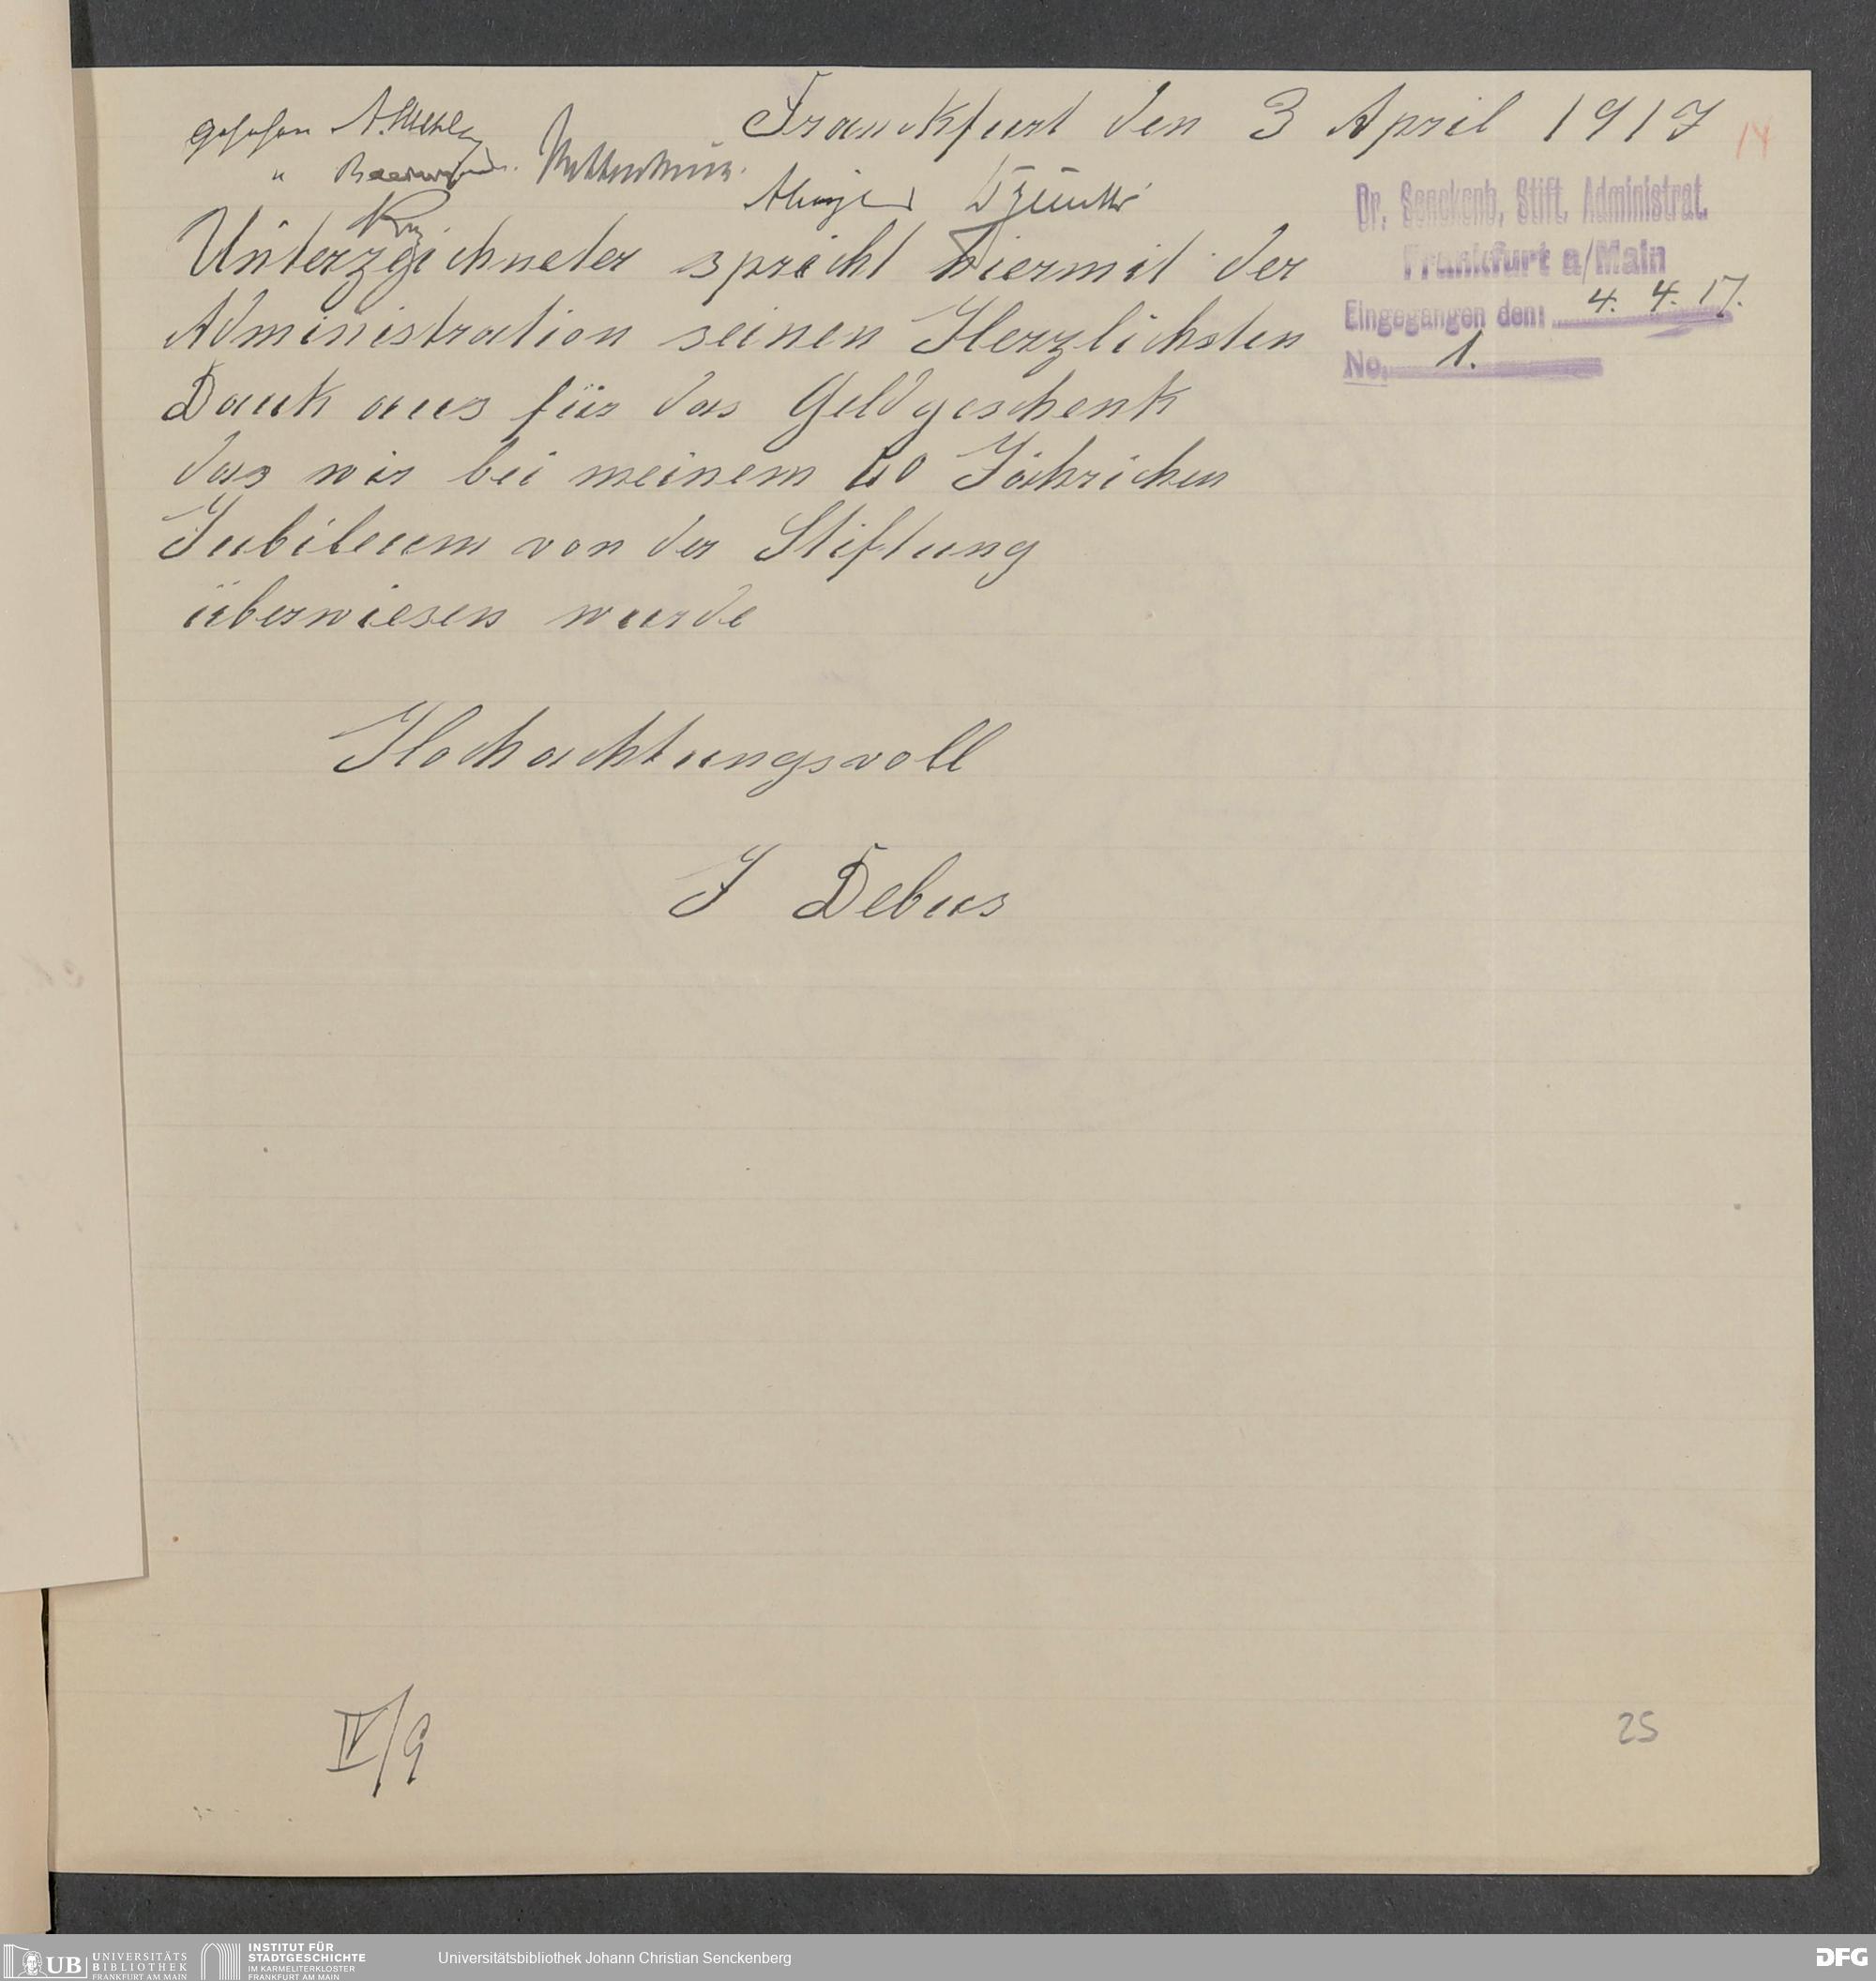 Franckfurt den 3 April 1917
14
gesehen A.
"
Dr. Senckenb. Stift. Administrat.
Frankfurt a/Main
Eingegangen den: 4. 4. 17.
No. 1.
Unterzeichneter spricht hiermit der
Administration seinen Herzlichsten
Dank aus für das Geldgeschenk
das mir bei meinem 40 Jährichen
Jubileum von der Stiftung
überwiesen wurde
Hochachtungsvoll
J Debus
IV/9
25
UB UNIVERSITÄTS BIBLIOTHEK FRANKFURT AM MAIN
INSTITUT FÜR STADTGESCHICHTE IM KARMELITERKLOSTER FRANKFURT AM MAIN
Universitätsbibliothek Johann Christian Senckenberg
DFG